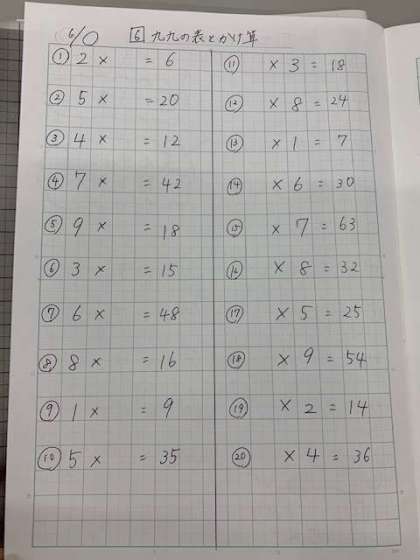 6/0 6 九九の表とかけ算
① 2 × = 6
② 5 × = 20
③ 4 × = 12
④ 7 × = 42
⑤ 9 × = 18
⑥ 3 × = 15
⑦ 6 × = 48
⑧ 8 × = 16
⑨ 1 × = 9
⑩ 5 × = 35
⑪ × 3 = 18
⑫ × 8 = 24
⑬ × 1 = 7
⑭ × 6 = 30
⑮ × 7 = 63
⑯ × 8 = 32
⑰ × 5 = 25
⑱ × 9 = 54
⑲ × 2 = 14
⑳ × 4 = 36